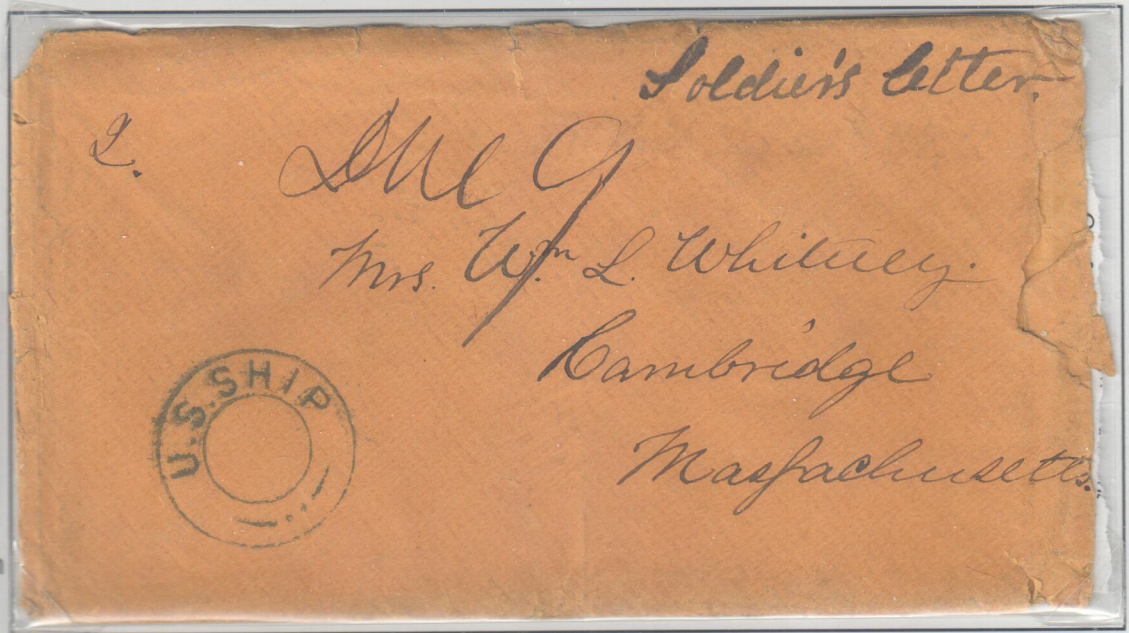 Soldier's letter.
2.
Due 9
Mrs. Wm. L. Whitney.
Cambridge
Massachusetts.
U.S. SHIP